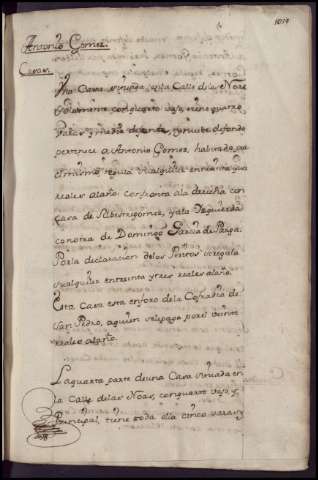 1019
Antonio Gomez.
Casas.
Una Casa situada en la Calle de la Noas
solamente con quarto vajo, tiene quatro
varas y media de frente, y nueve de fondo
pertenece a Antonio Gomez, habitada por
el mismo regula su alquiler en treinta y un
reales al año: confronta a la derecha con
casa de Silbestre gomez, y a la Izquierda
con otra de Domingo Garcia de Parga:
Por la declaracion de los Peritos se regula
su alquiler en treinta y tres reales al año.
Esta Casa esta en foro de la Cofradia de
San Pedro, a quien se le paga por el veinte
reales al año.
La quarta parte de una Casa situada en
la Calle de las Noas, con quarto vajo, y
Principal, tiene toda ella cinco varas y